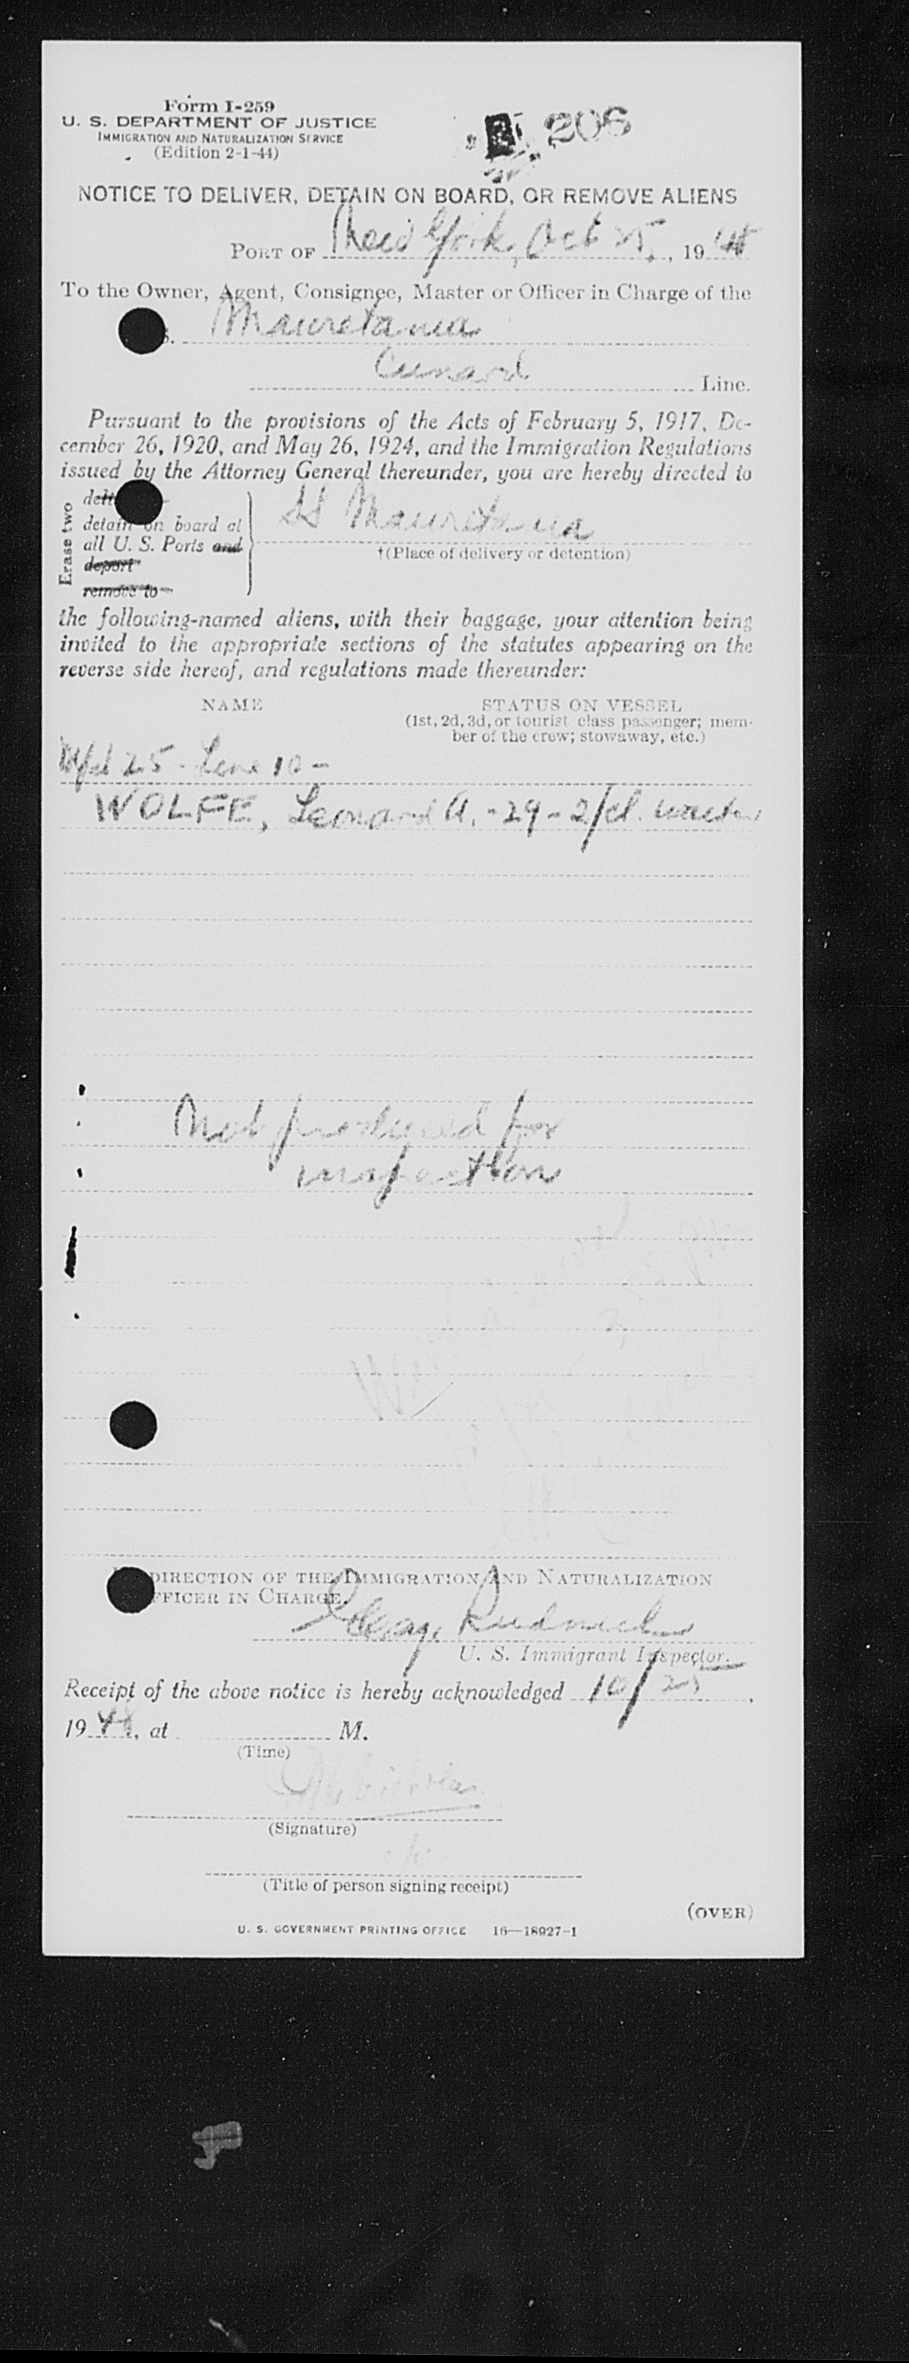 Form I-259
U. S. DEPARTMENT OF JUSTICE
IMMIGRATION AND NATURALIZATION SERVICE
(Edition 2-1-44)
206
NOTICE TO DELIVER, DETAIN ON BOARD, OR REMOVE ALIENS
PORT OF New York, Oct 25, , 19 48
To the Owner, Agent, Consignee, Master or Officer in Charge of the
S. Mauretania
Cunard Line.
Pursuant to the provisions of the Acts of February 5, 1917, De-
cember 26, 1920, and May 26, 1924, and the Immigration Regulations
issued by the Attorney General thereunder, you are hereby directed to
Erase two
detain on board at
all U. S. Ports and
deport
remove to
SS Mauretania
†(Place of delivery or detention)
the following-named aliens, with their baggage, your attention being
invited to the appropriate sections of the statutes appearing on the
reverse side hereof, and regulations made thereunder:
NAME STATUS ON VESSEL
(1st, 2d, 3d, or tourist class passenger; mem-
ber of the crew; stowaway, etc.)
25 - Line 10 -
WOLFE, Leonard A. - 29 - 2/cl. waiter
Not produced for
inspection
DIRECTION OF THE IMMIGRATION AND NATURALIZATION
OFFICER IN CHARGE.
U. S. Immigrant Inspector.
Receipt of the above notice is hereby acknowledged 10/25,
19 48, at M.
(Time)
(Signature)
(Title of person signing receipt)
(OVER)
U. S. GOVERNMENT PRINTING OFFICE 16—18927-1